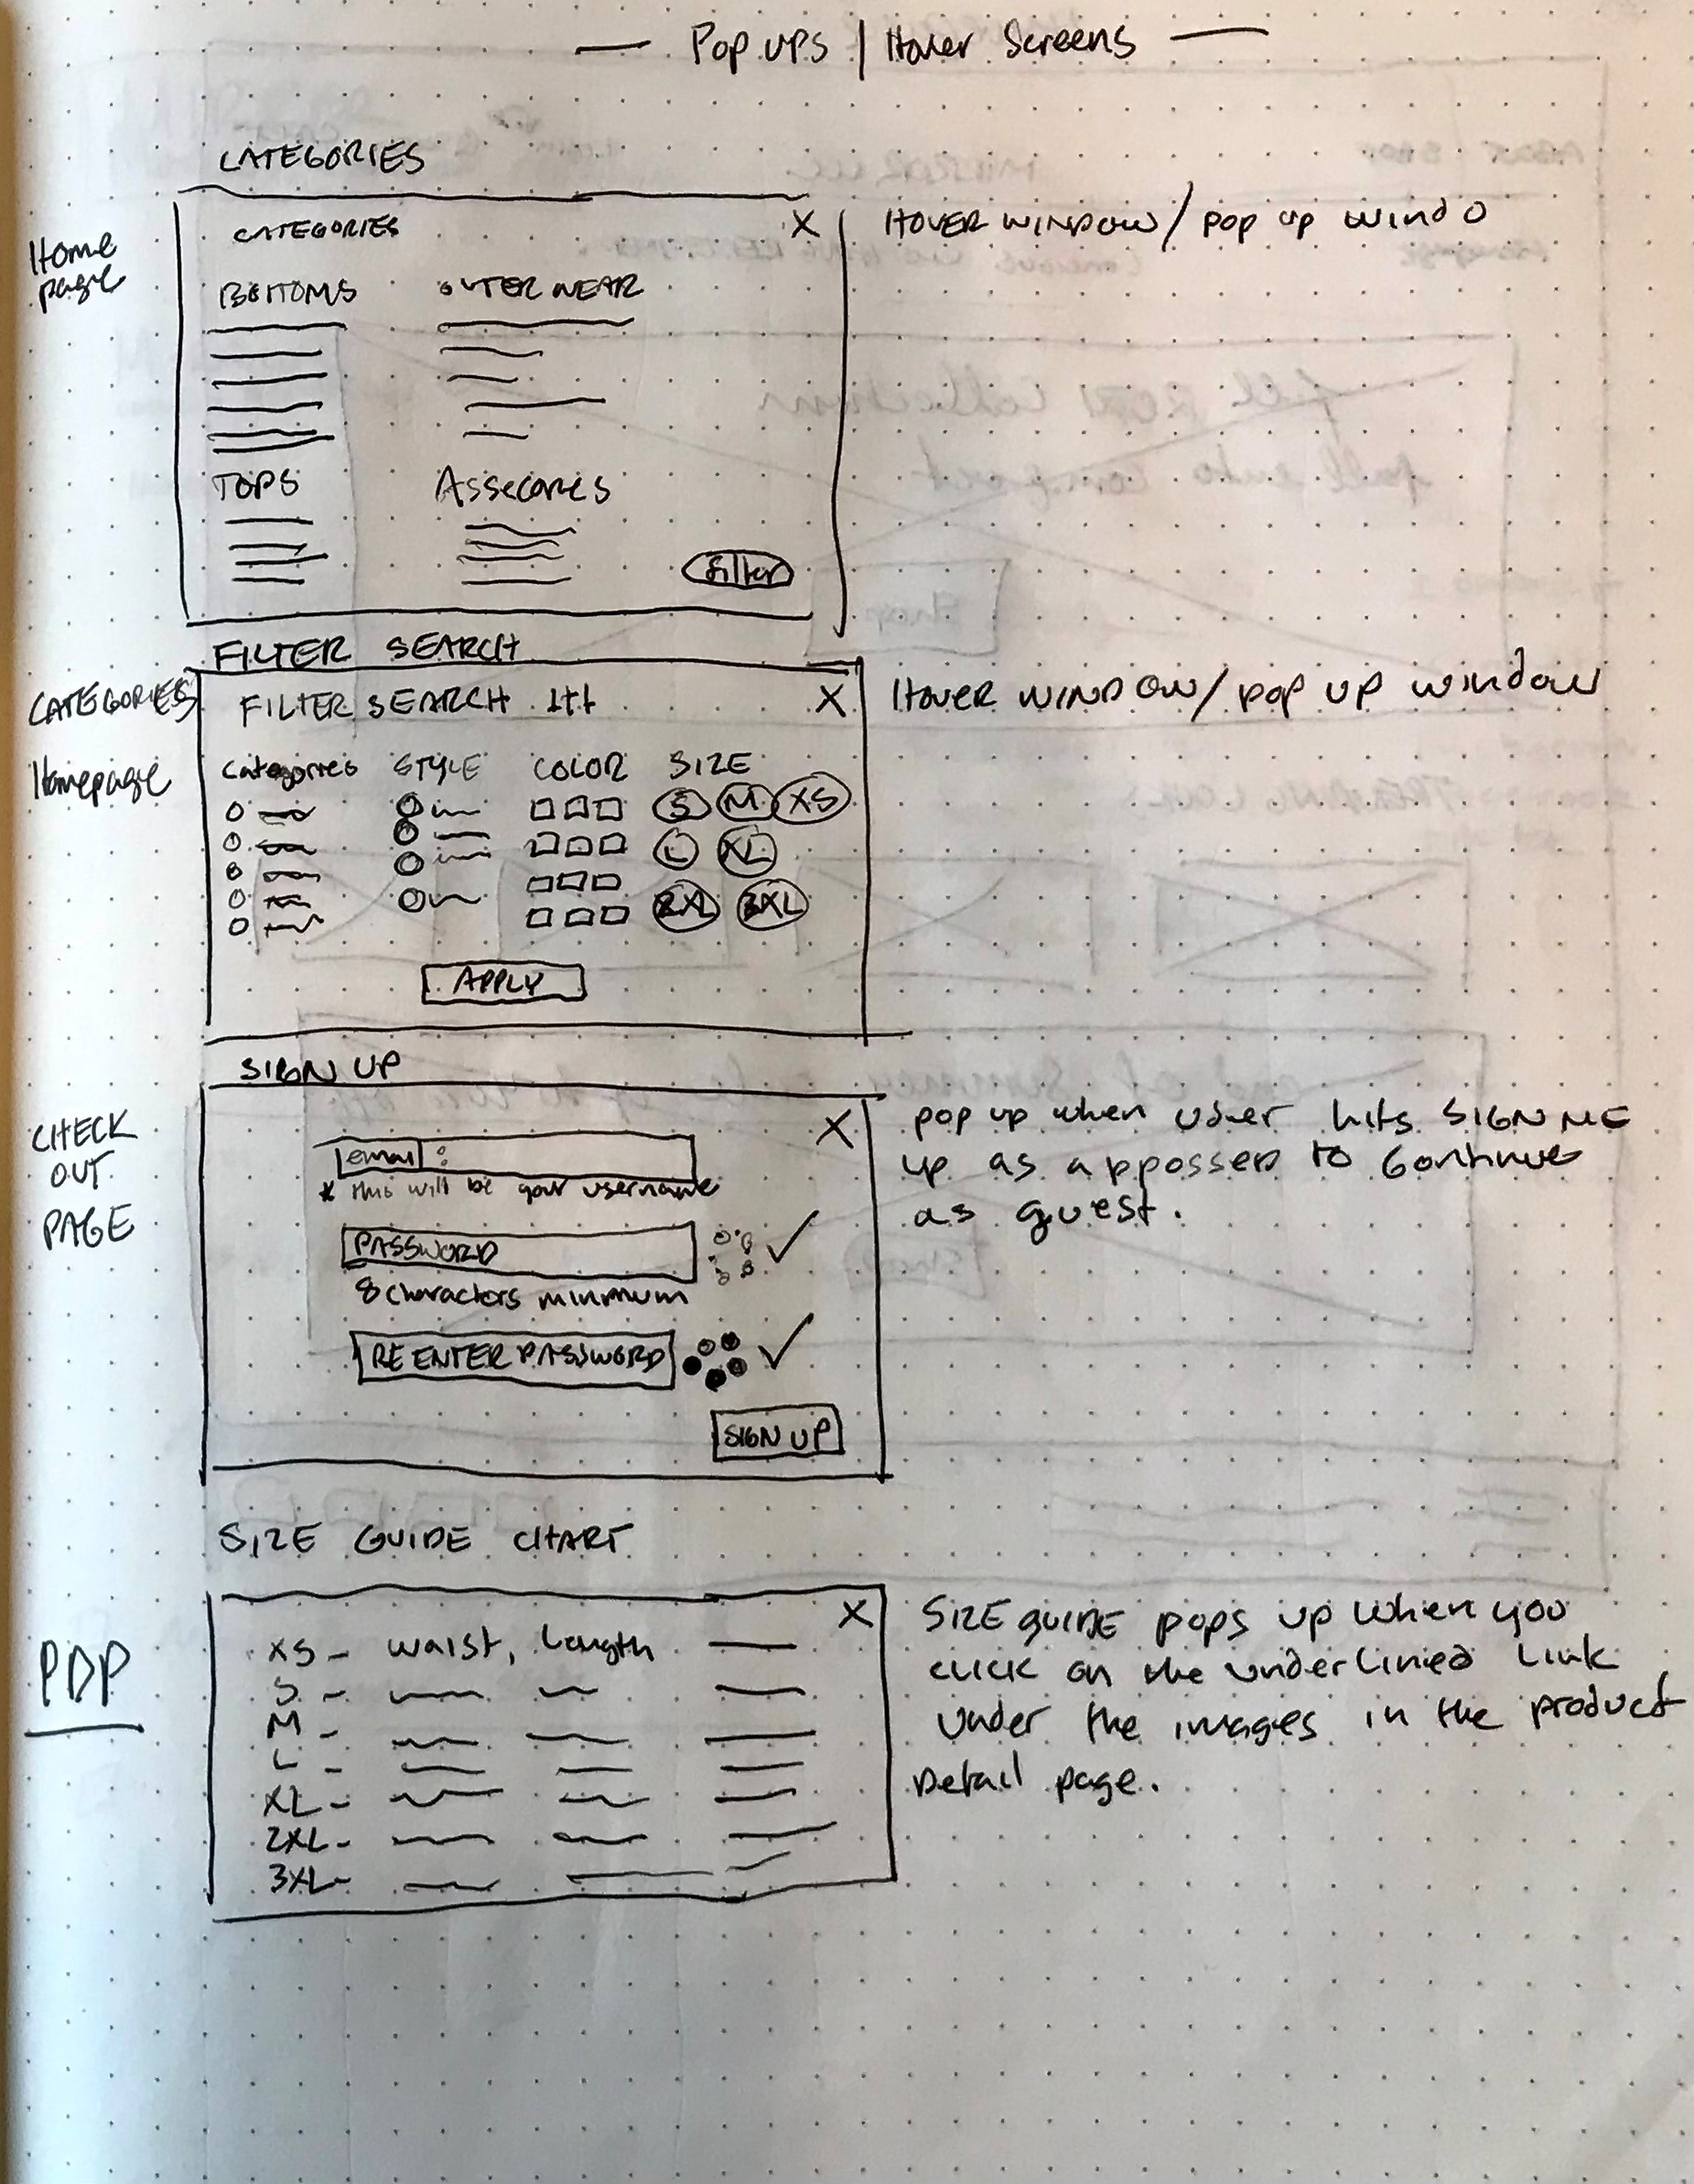 Pop ups | Hover Screens
CATEGORIES
Home
page
CATEGORIES X
BOTTOMS OUTERWEAR
TOPS Assecories
filter
HOVER WINDOW/pop up windo
FILTER SEARCH
CATEGORIES
Homepage
FILTER SEARCH X
Categories STYLE COLOR SIZE
S M XS
L XL
2XL 3XL
APPLY
HOVER WINDOW/pop up window
SIGN UP
CHECK
OUT
PAGE
X
email :
* this will be your username
PASSWORD
8 charactors minimum
RE ENTER PASSWORD
SIGN UP
pop up when user hits SIGN ME
up as apposed to continue
as guest.
SIZE GUIDE CHART
PDP
X
XS - waist, length
S -
M -
L -
XL -
2XL -
3XL -
SIZE GUIDE pops up when you
click on the underlined link
under the images in the product
Detail page.